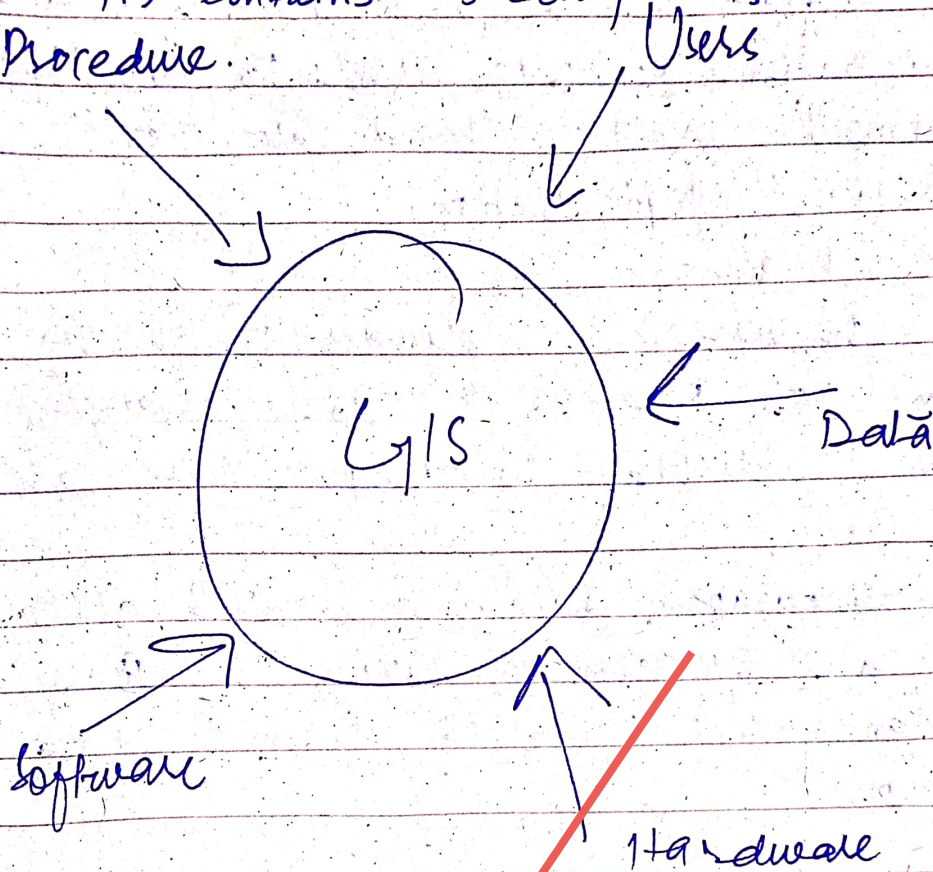 contains
Procedure.
Users
GIS
Data
Software
Hardware